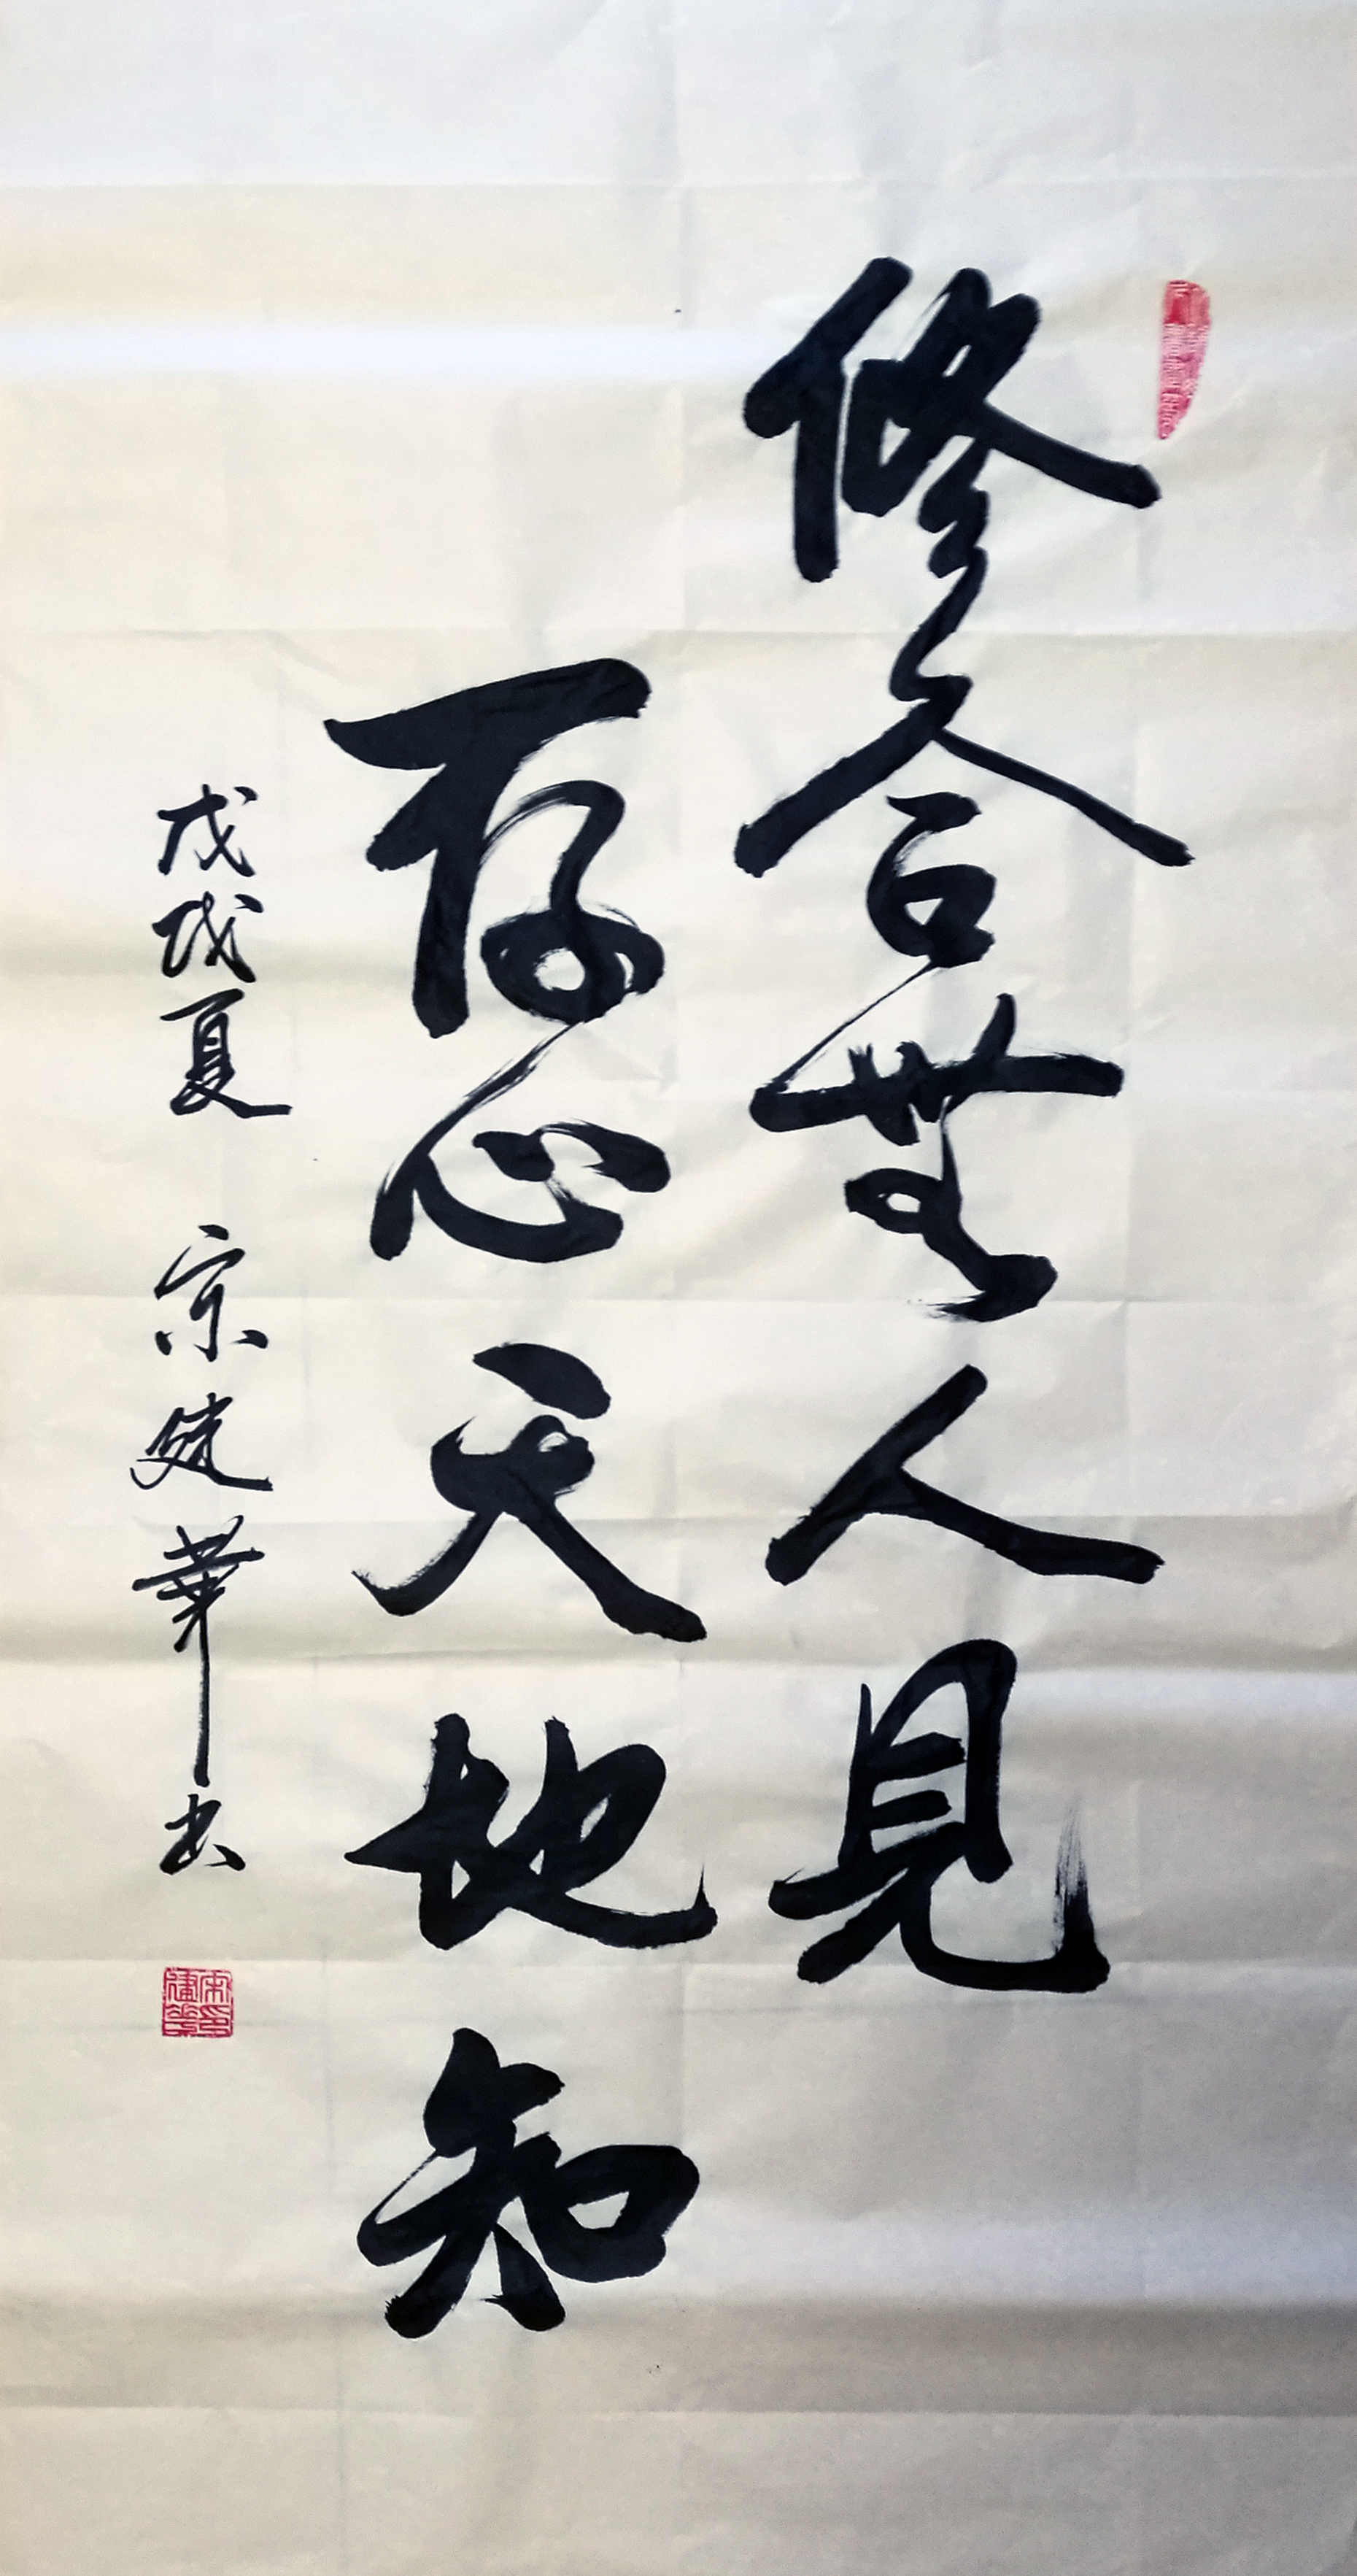 修合無人見
存心天地知
戊戌夏 宗建華書